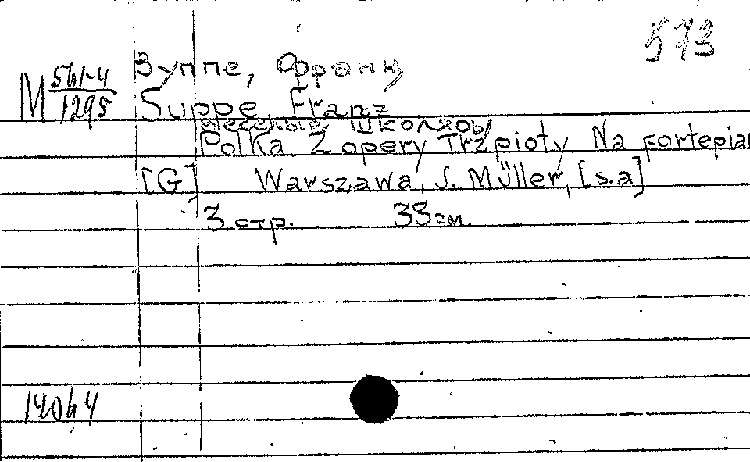 573
М 561-4/1295
Зуппе, Франц
Suppe, Franz
Веселые школяры
Polka z opery Trzpioty Na fortepian
[G] Warszawa, J. Müller, [s.a]
3 стр. 33 см.
14064